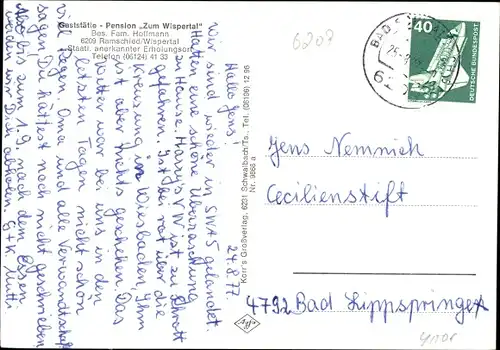 Gaststätte - Pension „Zum Wispertal"
Bes. Fam. Hoffmann
6209 Ramschied/Wispertal
Staatl. anerkannter Erholungsort
Telefon (06124) 41 33
6209
24.8.77
Hallo Jens!
Wir sind wieder in SWA 5 gelandet.
Hatten eine schöne Überraschung
zu Hause. Harrys VW ist zu Schrott
gefahren. Gst. Ober rat über die
Kreuzung in Wiesbaden, Ihm
ist aber nichts geschehen. Das
Wetter war bei uns in den
letzten Tagen nicht schön
viel Regen. Oma und alle Verwandtschaft
sagen Du hättest noch nicht geschrieben.
Also bis zum 1.9. nach dem Essen
werden wir Dich abholen. G+K. Mutti
Korr's Großverlag, 6231 Schwalbach/Ts., Tel. (06196) 12 96
Nr. 9866 a
40
DEUTSCHE BUNDESPOST
BAD
Jens Nemnich
Cecilienstift
4792 Bad Lippspringe